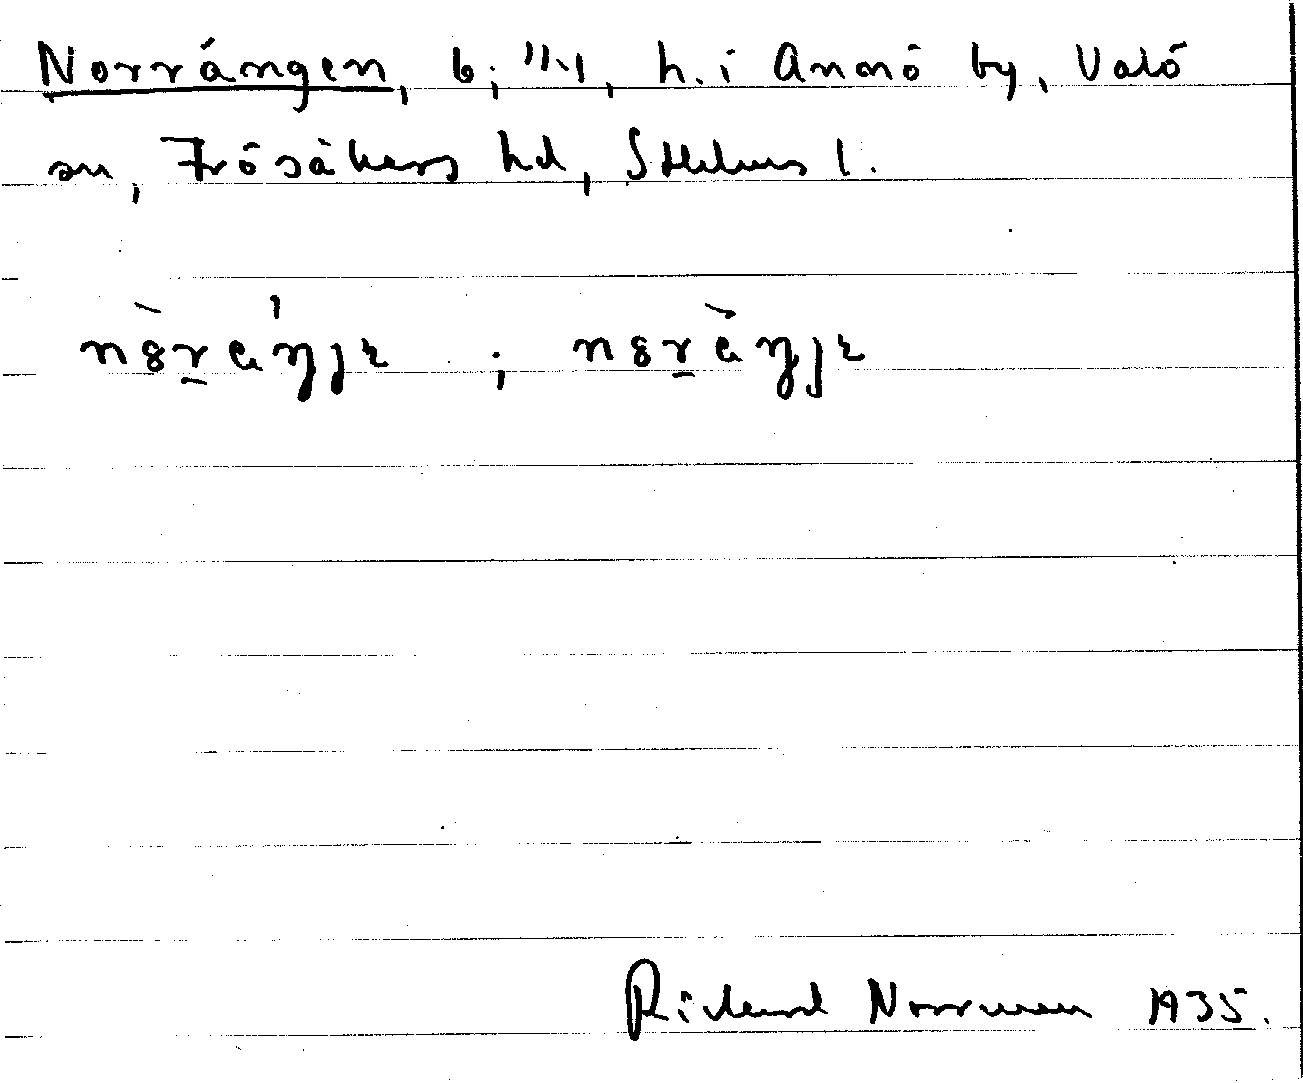 Norrängen, b; 11.1, h. i Annö by, Valö
sn, Frösåkers hd, Sthlms l.
nȣ̀rɑ́ŋjɛ ; nȣrɑ̀ŋjɛ
Rickard Norrman 1935.